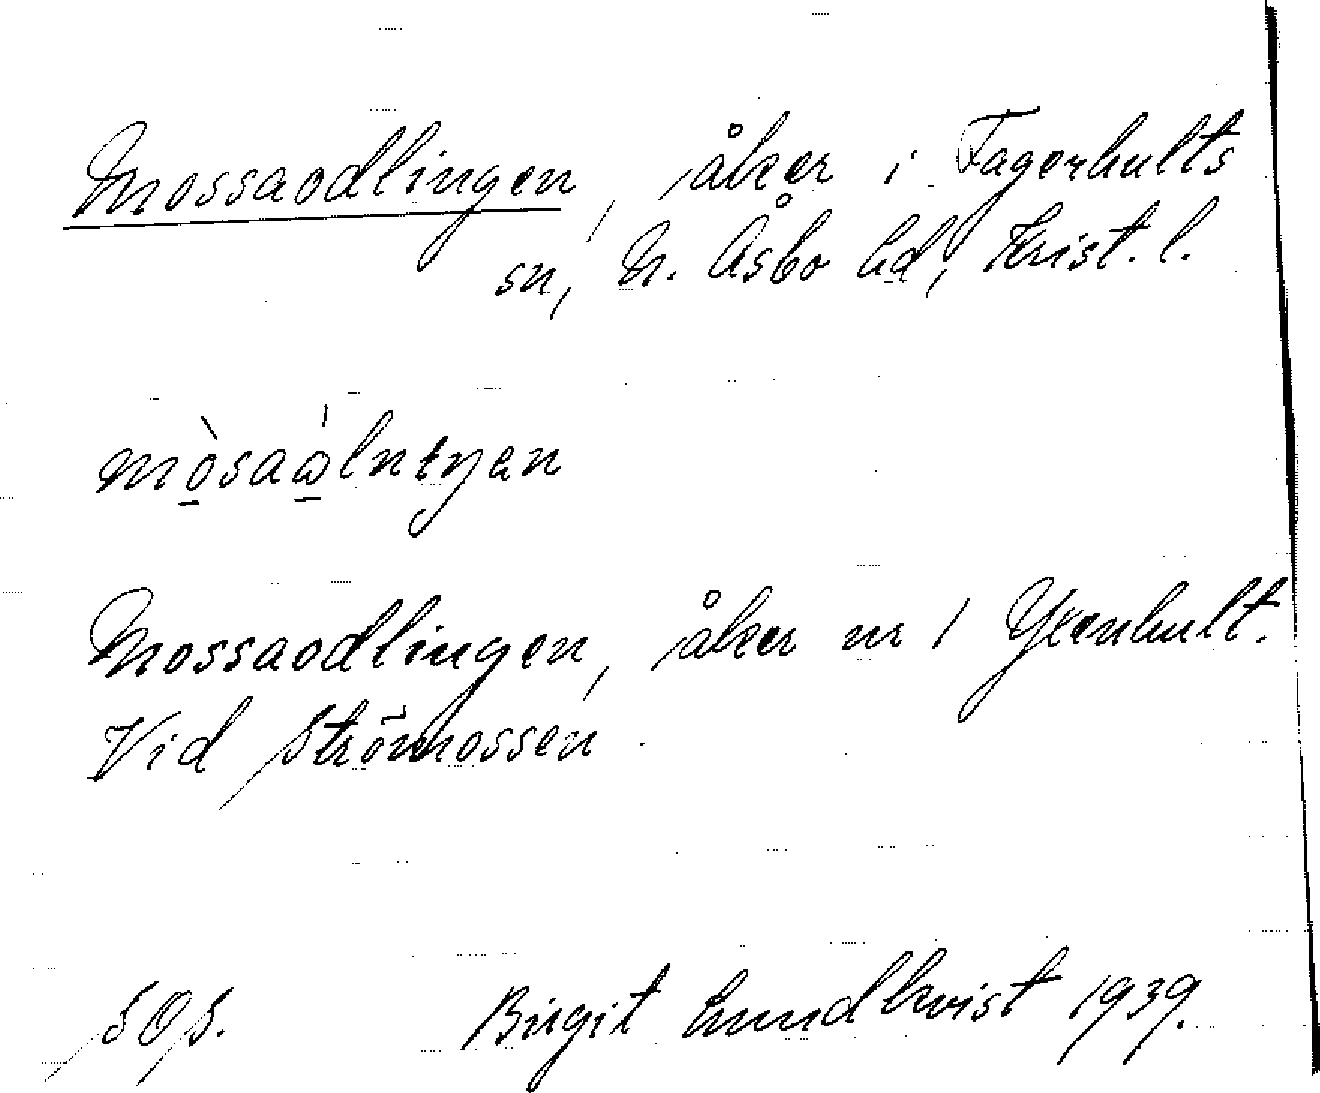 Mossaodlingen, åker i Fagerhults
sn, N. Åsbo hd, Krist. l.
mòsaòlnıŋen
Mossaodlingen, åker nr 1 Yxenhult.
Vid Strömossen
SOS. Birgit Lundkvist 1939.